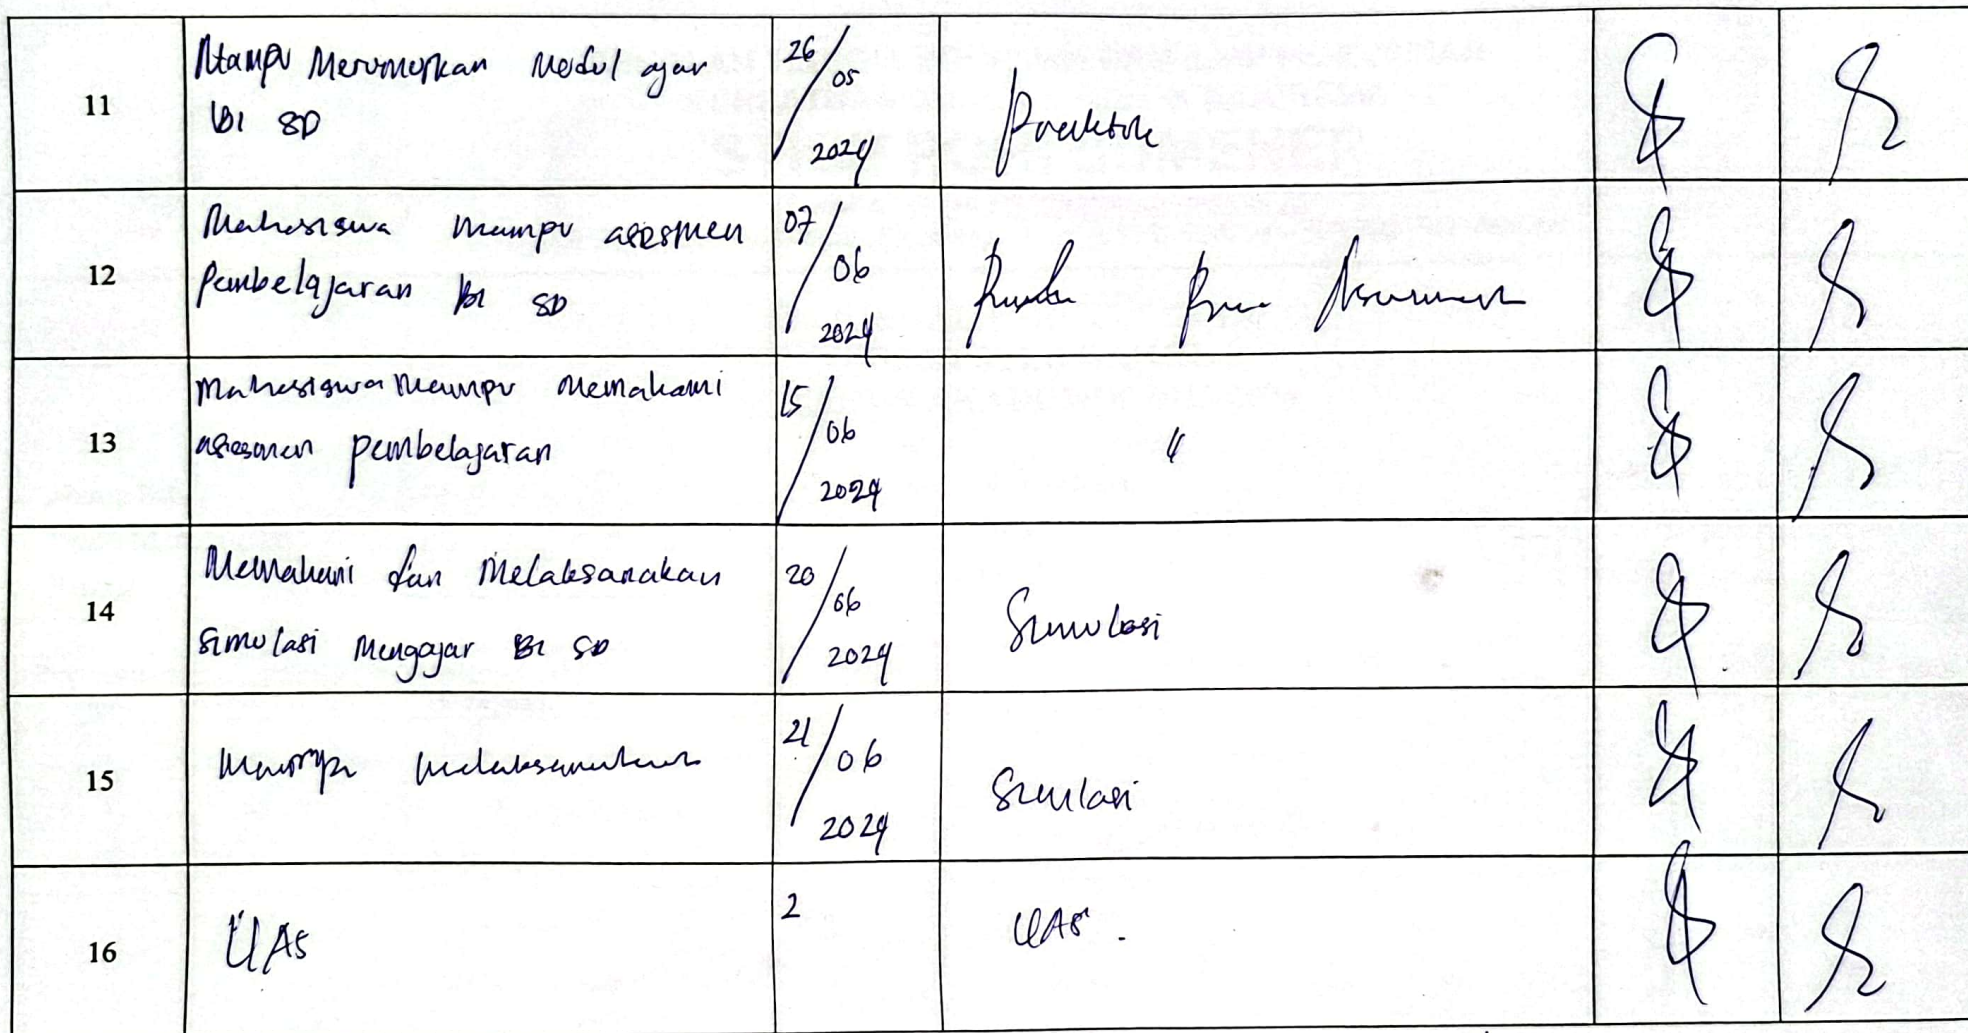 11
Mampu Merumuskan Modul ajar
BI SD
26/05
2024
Praktek
12
Mahasiswa Mampu asesmen
Pembelajaran BI SD
07/06
2024
13
Mahasiswa Mampu Memahami
asesmen pembelajaran
15/06
2024
"
14
Memahami dan Melaksanakan
Simulasi Mengajar BI SD
20/06
2024
Simulasi
15
Mampu melaksanakan
21/06
2024
Simulasi
16
UAS
2
UAS.